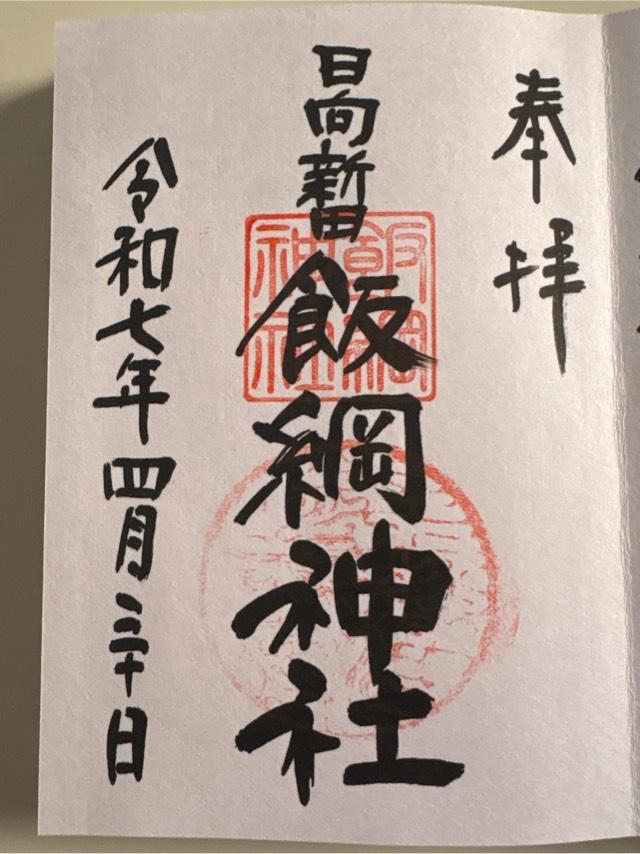 奉拝
日向新田
飯綱神社
飯綱神社
令和七年四月三十日